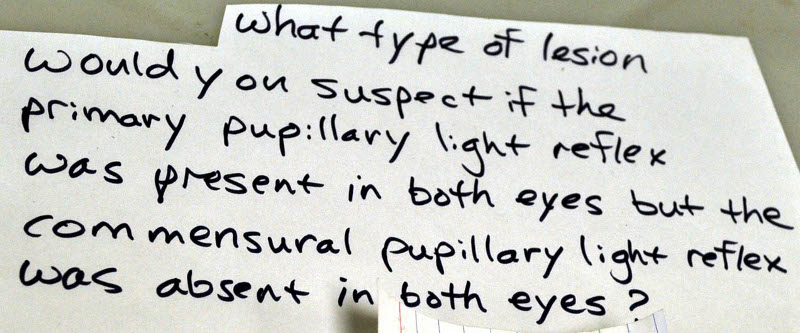 what type of lesion
would you suspect if the
primary pupillary light reflex
was present in both eyes but the
commensural pupillary light reflex
was absent in both eyes?